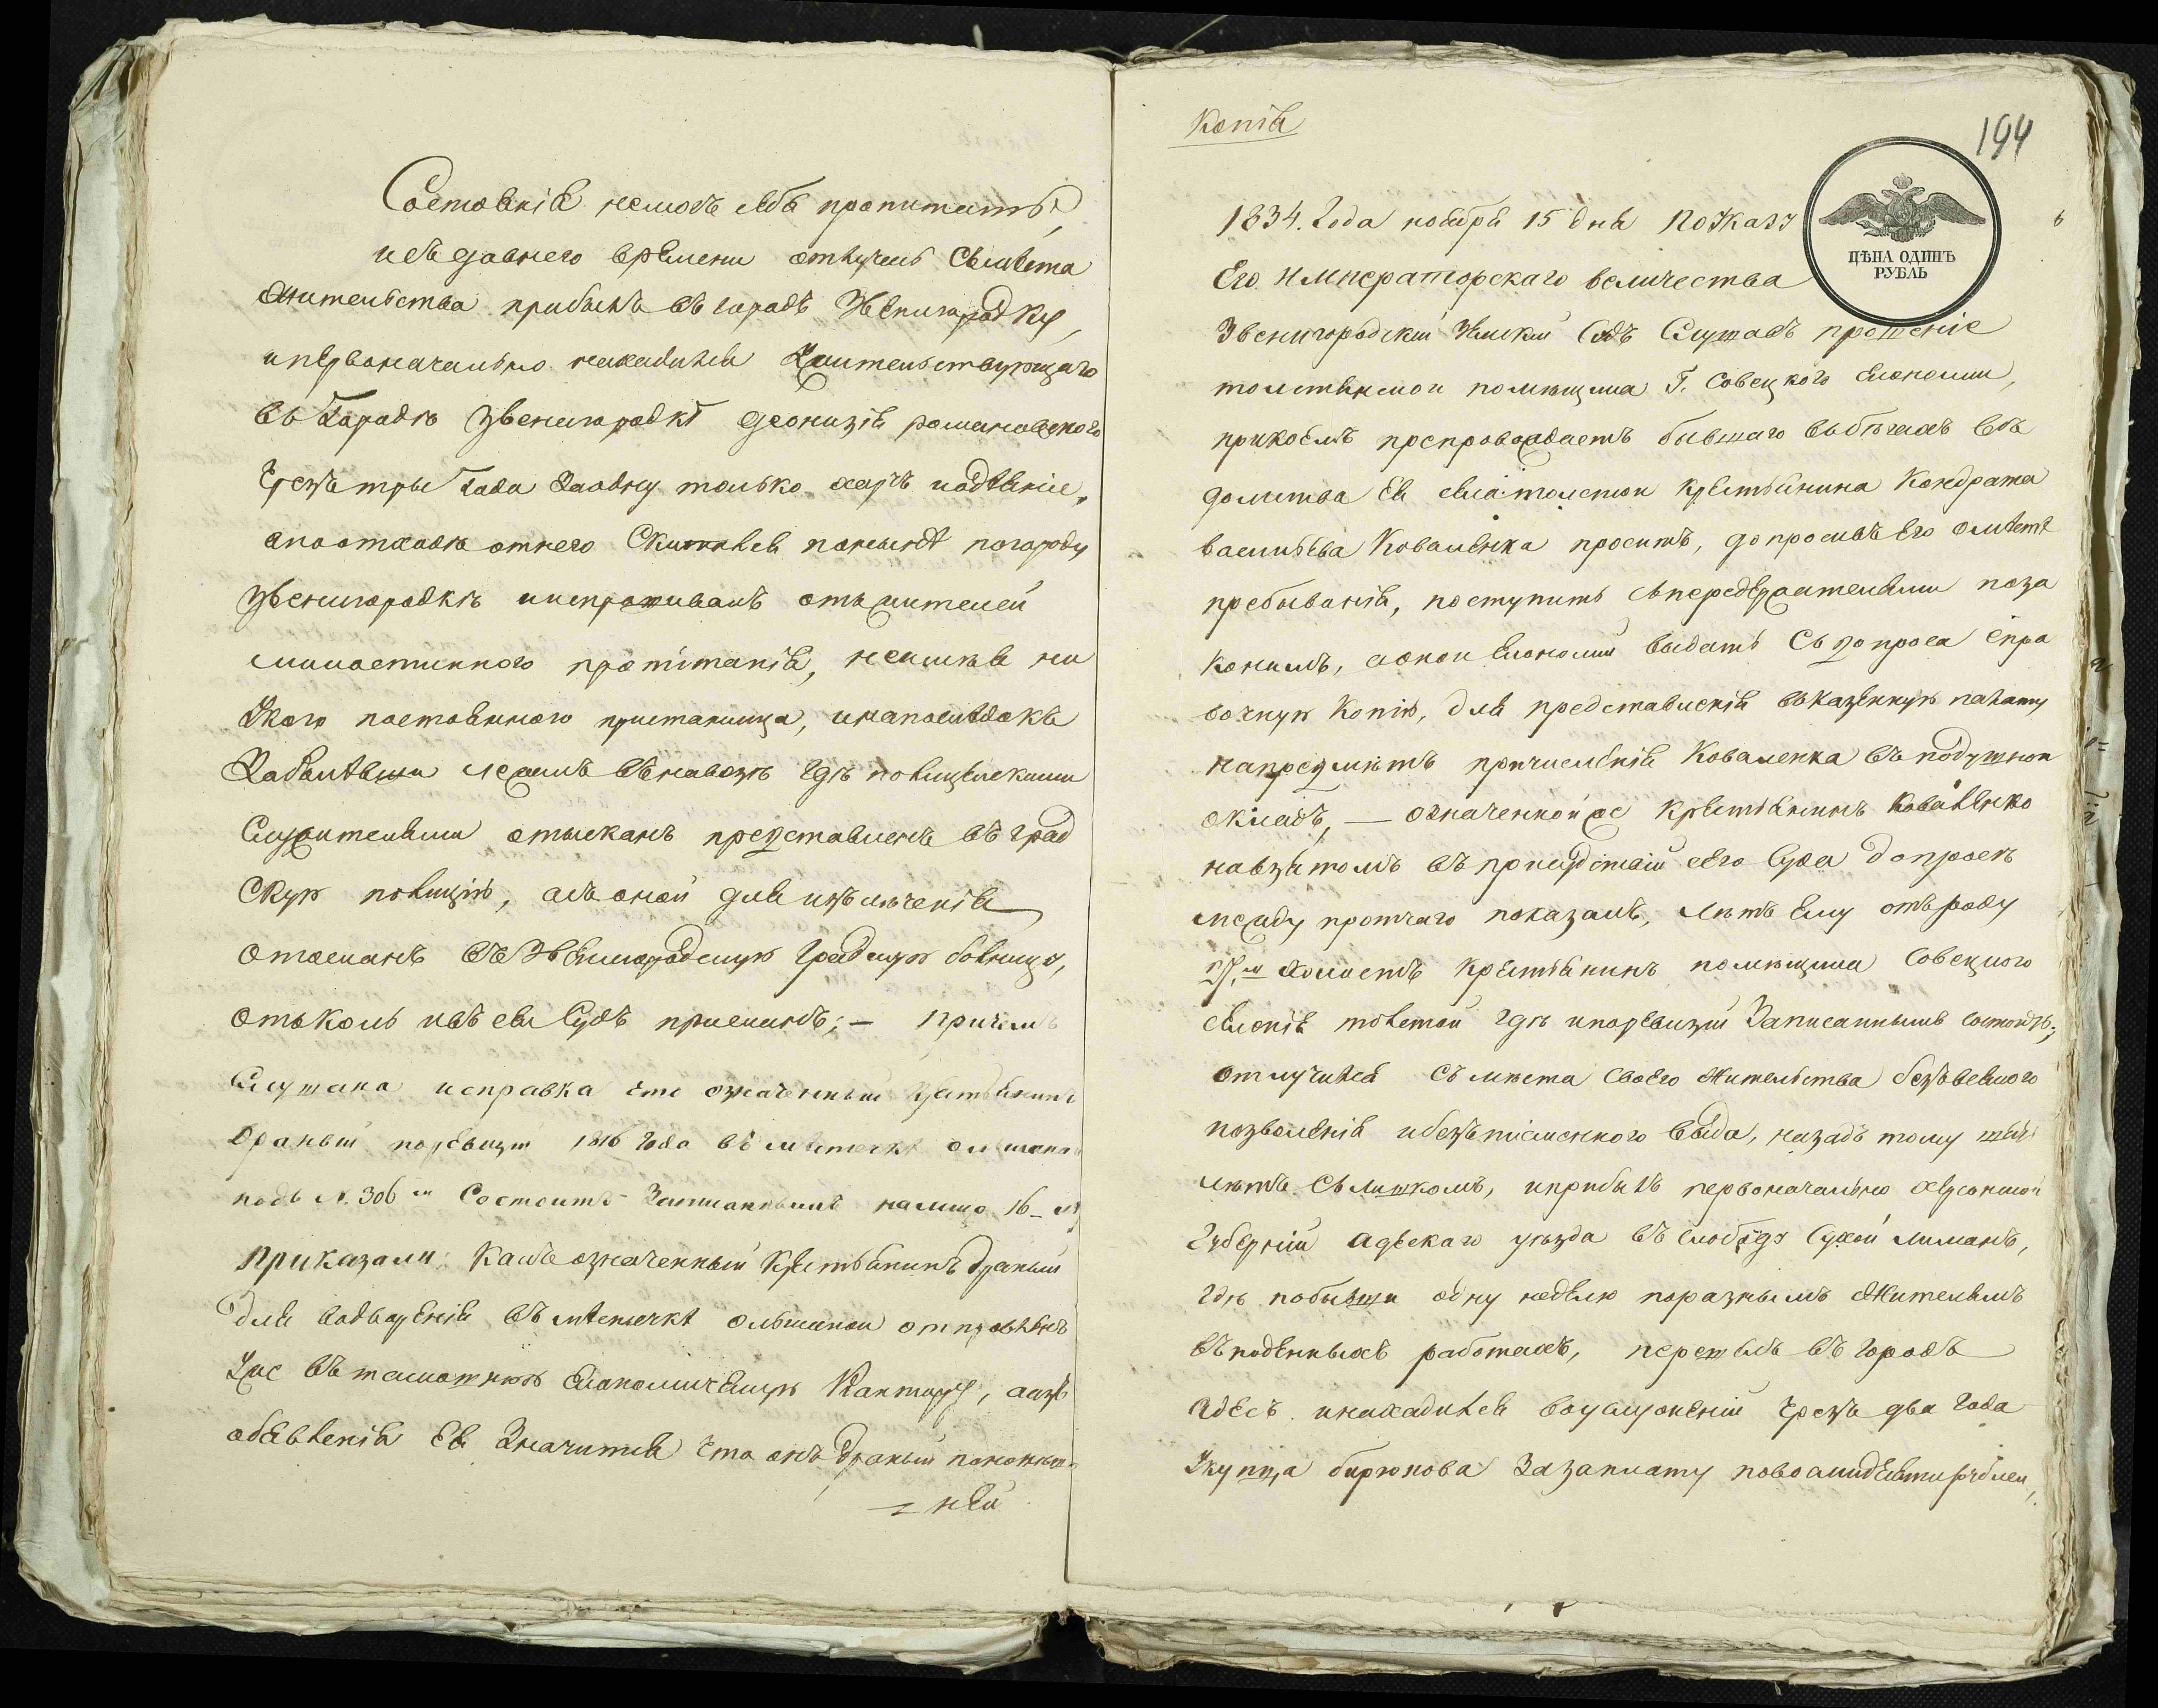 Состоянія немогъ себя пропитать,
исъ давнего времени отлучась съ места
жительства прибылъ въ городъ Звенигородку,
и первоначально находился жительствующаго
въ Городѣ Звенигородкѣ Деонизія романовского
Чрезъ три Года За одну только харчъ и одѣяніе,
апоотходѣ отнего Скитался по городу
Звенигородкѣ и испрашивалъ отъ жителей
милостинного пропитанія, неимѣя ни
якого постоянного пристанища, инапослѣдокъ
Заболѣвши лежалъ въ навозѣ гдѣ полицейскими
Служительми отысканъ представленъ въ град
скую полицію, а съ оной для излѣченія
отосланъ въ Звенигородскую Градскую болницу,
отколь и въ сей Судъ присланъ; — причемъ
Слушана исправка что означенный крестьянинъ
Драный поревизіи 1816 Года въ местечкѣ олшаной
подъ №. 306 м Состоитъ Записаннымъ налицо 16 —
приказали: какъ означенный крестьянинъ Драный
для водворенія въ местечкѣ олшаной отправленъ
уже въ тамошнюю Економическую Кантору, а изъ
обявленія Ея Значится что онъ Драный
— ней
Копія
194
1834. Года ноября 15 дня По указу
Его Императорскаго величества
ЦѢНА ОДИНЪ
РУБЛЬ
Звенигородскій Земскій Судъ Слушавъ прошеніе
толстянской помещика Г. Совецкого Економіи,
прикоемъ препровождаетъ бывшаго въ бегахъ съ
домства Ея села толстой крестьянина Кондрата
васильева Коваленка проситъ, допросивъ Его о месте
пребыванія, поступить съ передержательми поза
конамъ, а оной Економіи выдать Съ допроса спра
вочную Копію, для представленія въ казенную палату
напредметъ причисленія Коваленка въ подушной
окладъ, — означенной же крестьянинъ Коваленко
навзятомъ въ присудствіи сего Суда допросѣ
между протчаго показалъ, летъ Ему отъ роду
холостъ крестьянинъ помещика Совецкого
селенія толстой гдѣ и поревизіи Записаннымъ состоитъ;
отлучился съ места своего жительства безъ всякого
позволенія и безъ писменного вида, назадъ тому
летъ Съ лишкомъ, и прибылъ первоначально херсонской
Губерніи адескаго уезда въ слободу Сухой лиманъ,
гдѣ побывши одну неделю поразнымъ жителямъ
въ поденныхъ работахъ, перешелъ въ городъ
адесъ инаходился воуслуженіи Чрезъ два Года
У купца бирюкова За заплату